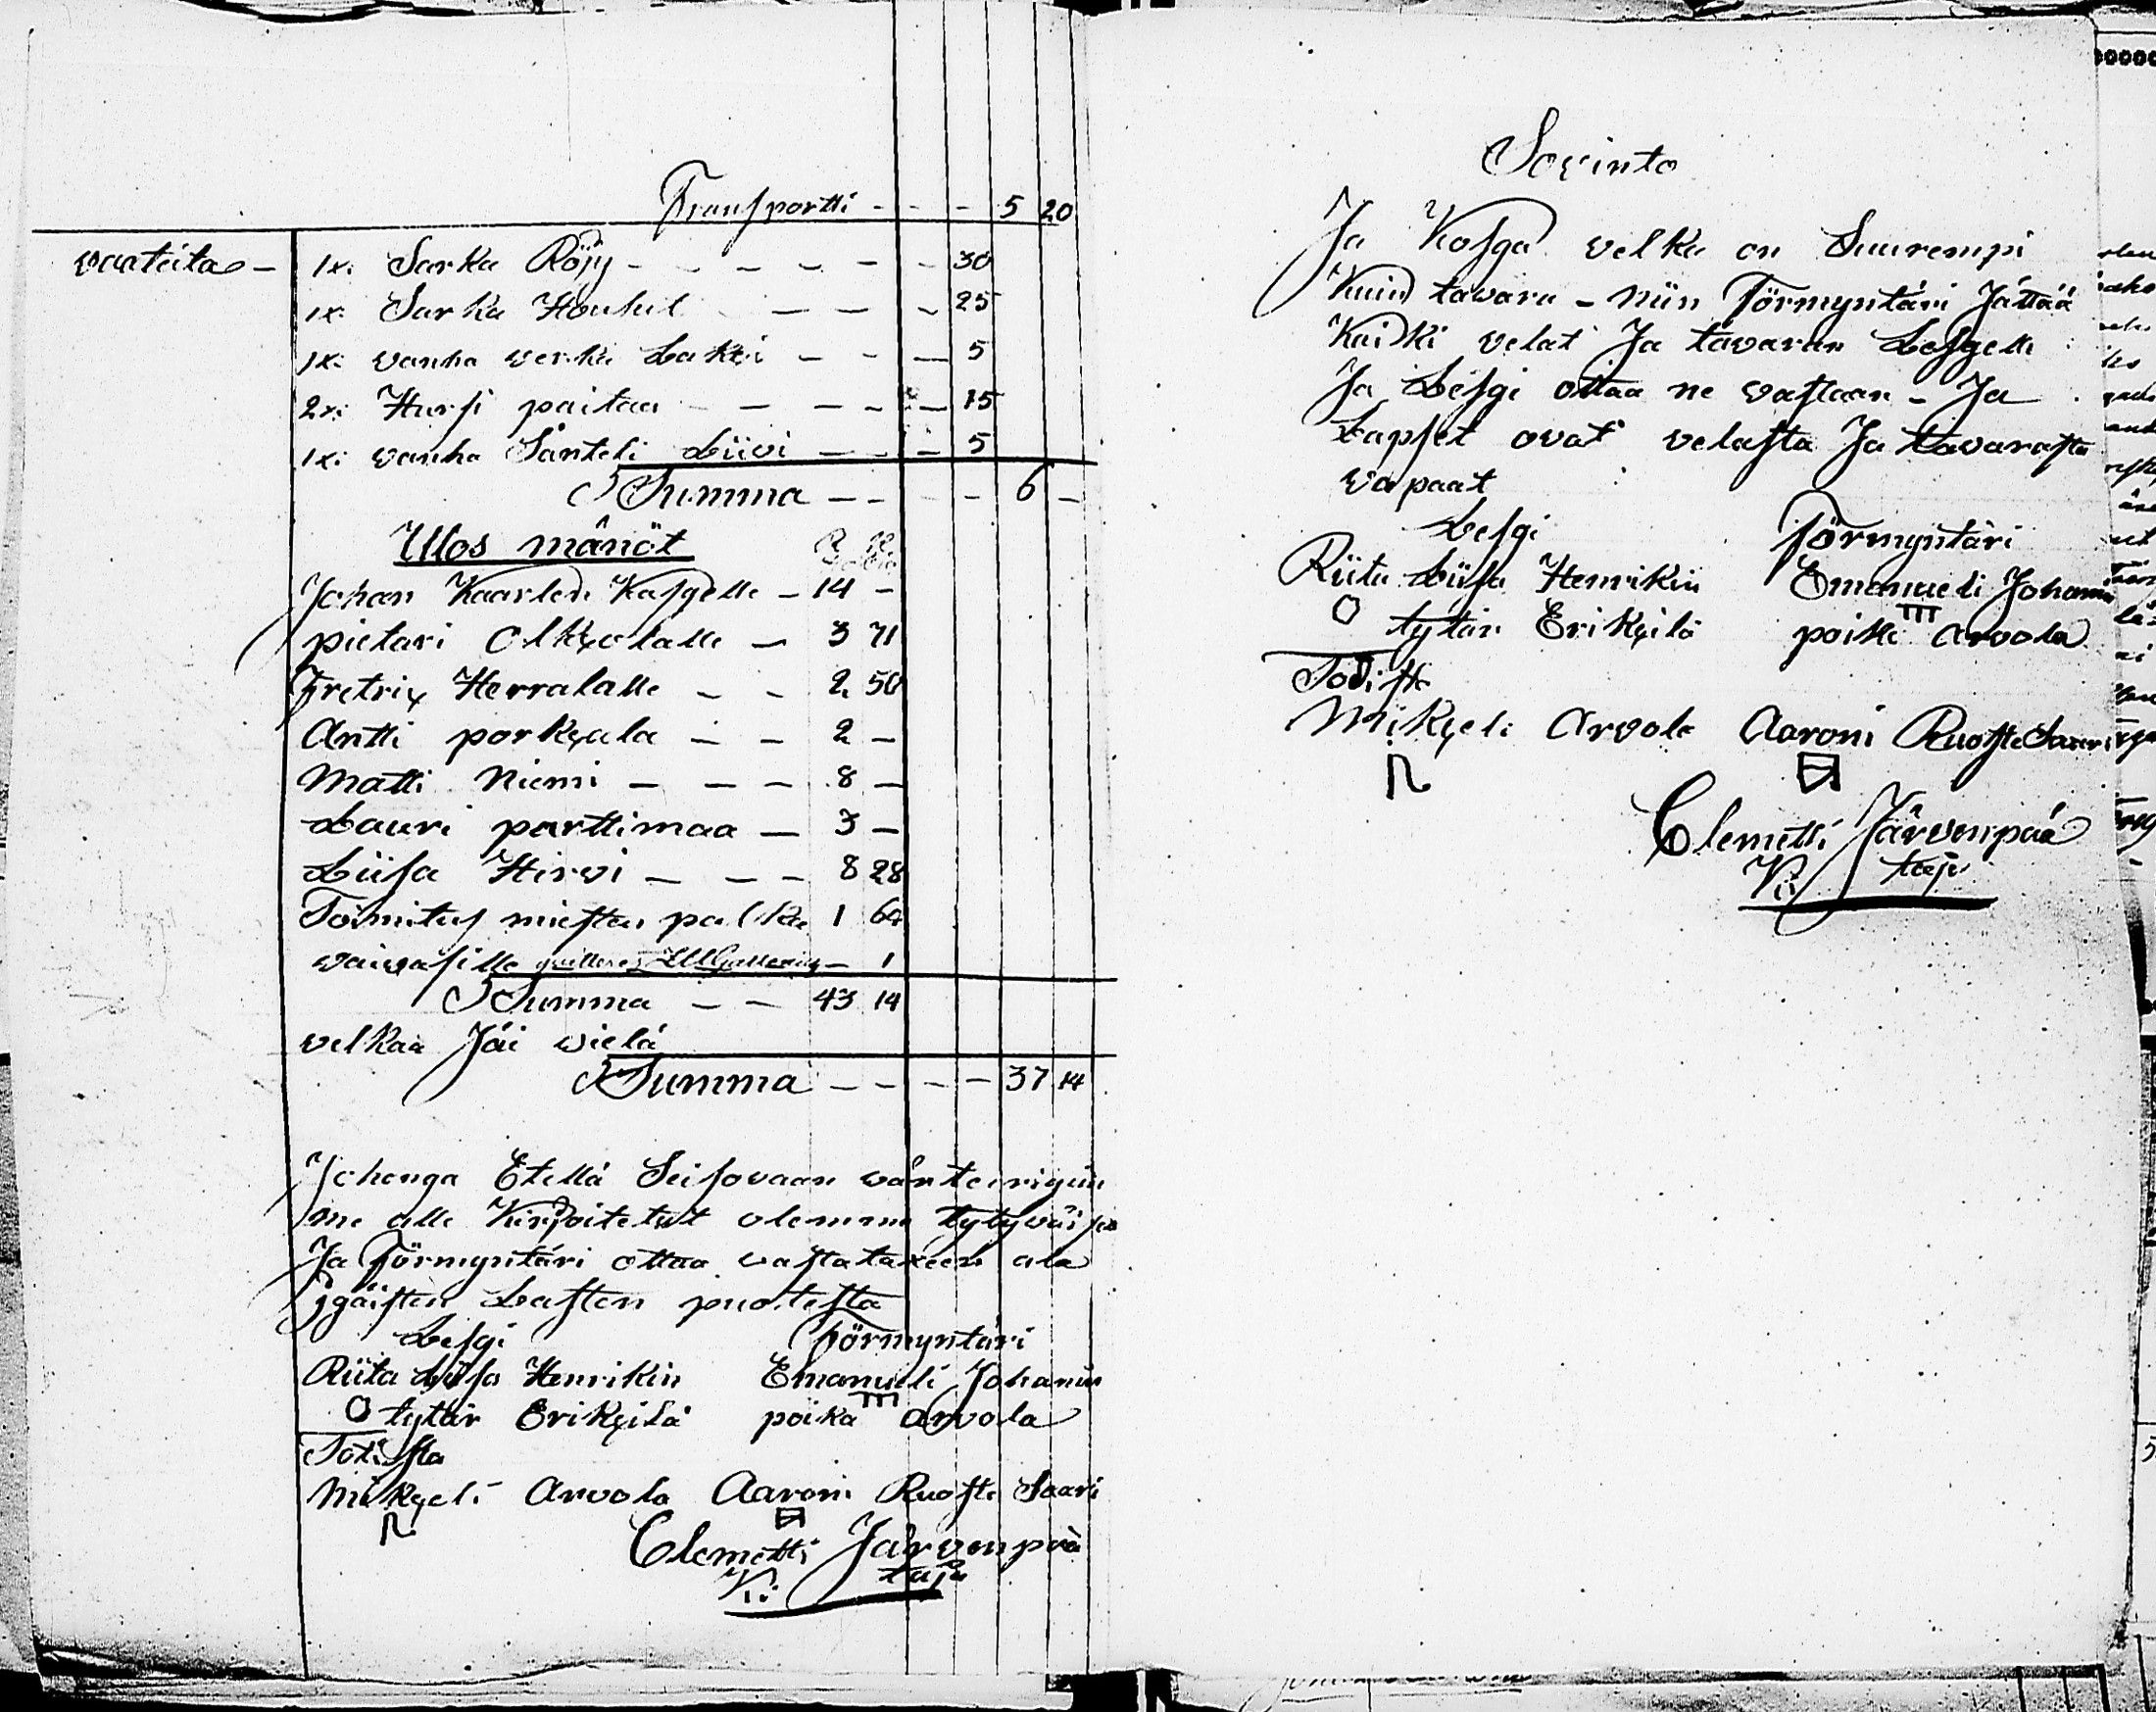 Transportti - - - 5 20
vaateita - 1x: Sarka Röjy - - - - - - 30
1x: Sarka Housut - - - - 25
1x: vanha verka Lakki - - - 5
2x: Hursi paitaa - - - - - 15
1x: vanha Sänteli Liivi - - - 5
Summa - - - - 6 -
Ulos mänöt
Johan Kaarlen Kasgelle - 14 -
pietari Olkgolalle - 3 71
Fretrix Herralalle - - 2 50
Antti porkgala - - 2 -
Matti Niemi - - - 8 -
Lauri parttimaa - 3 -
Liisa Hirvi - - - 8 28
Toimitus miesten palkka 1 64
vaivasille - 1
Summa - - 43 14
velkaa Jäi vielä
Summa - - - - 37 14
Johonga Etellä Seisovaan värteiringiin
me alle Kirjoitetut olemme tytyväiset
Ja Förmyntäri ottaa vastataxeen ala
jgäisten Lasten puolesta
Lesgi Förmyntäri
Riita Liisa Henrikin Emanueli Johanin
tytär Erikgilä poika arvola
Totista
Mikgeli Arvola Aaroni Ruoste Saari
Clemetti Järvenpää
Ki: taja
Sovinto
Ja Kosga velka on Suurempi
Kuin tavara - niin Förmyntäri Jättää
Kaikki velat Ja tavaran Lesgelle
Ja Lesgi ottaa ne vastaan - Ja
Lapset ovat velasta Ja tavarasta
vapaat
Lesgi Förmyntäri
Riita Liisa Henrikin Emanueli Johanin
tytär Erikgilä poika arvola
Todista
Mikgeli Arvola Aaroni Ruoste Saari
Clemetti Järvenpää
Ki taja